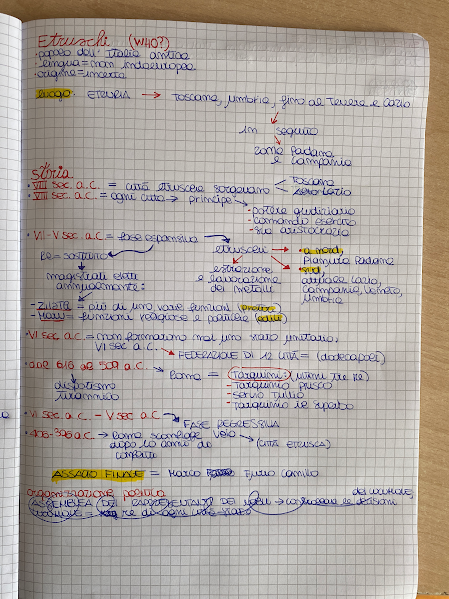 Etruschi (WHO?)
·popolo dell'Italia antica
·lingua=non indoeuropea
·origine=incerta
luogo: ETRURIA → TOSCANA, UMBRIA, fino al Tevere e Lazio
in seguito
zona Padana e Campania
Storia
·VIII sec. a.C. = città etrusche sorgevano
TOSCANA
LAZIO
·VIII sec. a.C. = ogni città → principe
·potere giudiziario
·comando esercito
·sua aristocrazia
·VI-V sec. a.C = fase espansiva
etruschi
·a nord,
Pianura Padana
·sud,
Lazio,
Campania, Veneto,
Umbria
Re = sostituito
magistrati eletti
annualmente:
estrazione
e lavorazione
dei metalli
-Zilath = più di uno varie funzioni
-Maru = funzioni religiose e politiche
·VI sec. a.C. = non formarono mai uno stato unitario,
VI sec a.C. → FEDERAZIONE DI 12 CITTÀ = (dodecapoli)
·dal 616 al 509 a.C. → Roma = Tarquini: (ultimi tre Re)
-Tarquinio prisco
-servio Tullio
-Tarquinio il superbo
dispotismo
tirannico
·VI sec. a.C. - V sec a.C. → FASE REGRESSIVA
·406-396 a.C. → Roma sconfigge Veio
dopo 10 anni di
(CITTÀ ETRUSCA)
ASSALTO FINALE = Marco Furio Camillo
organizzazione politica
ASSEMBLEA DEI RAPPRESENTANTI DEI
decisioni
= re di ogni